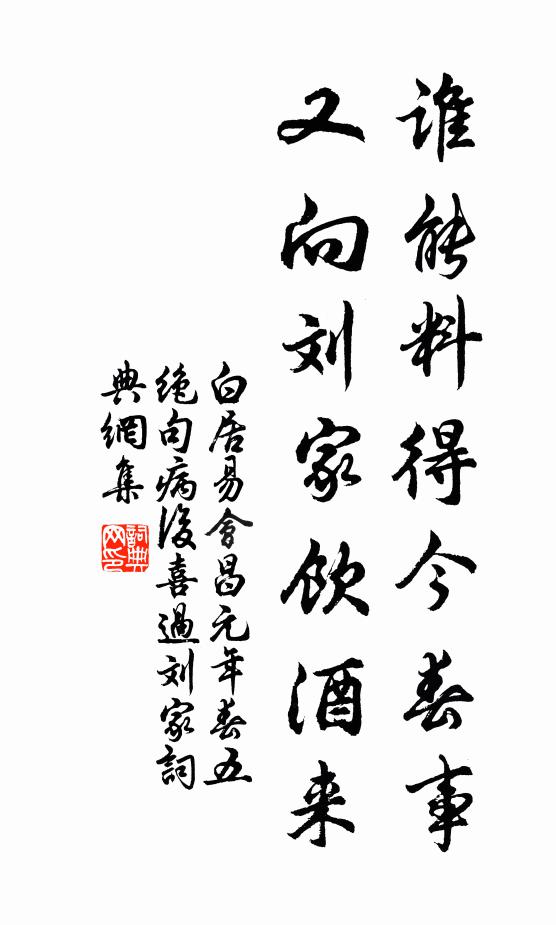 谁能料得今春事
又向刘家饮酒来
白居易会昌元年春五
绝句病后喜過刘家詞
典網集
詞典网印